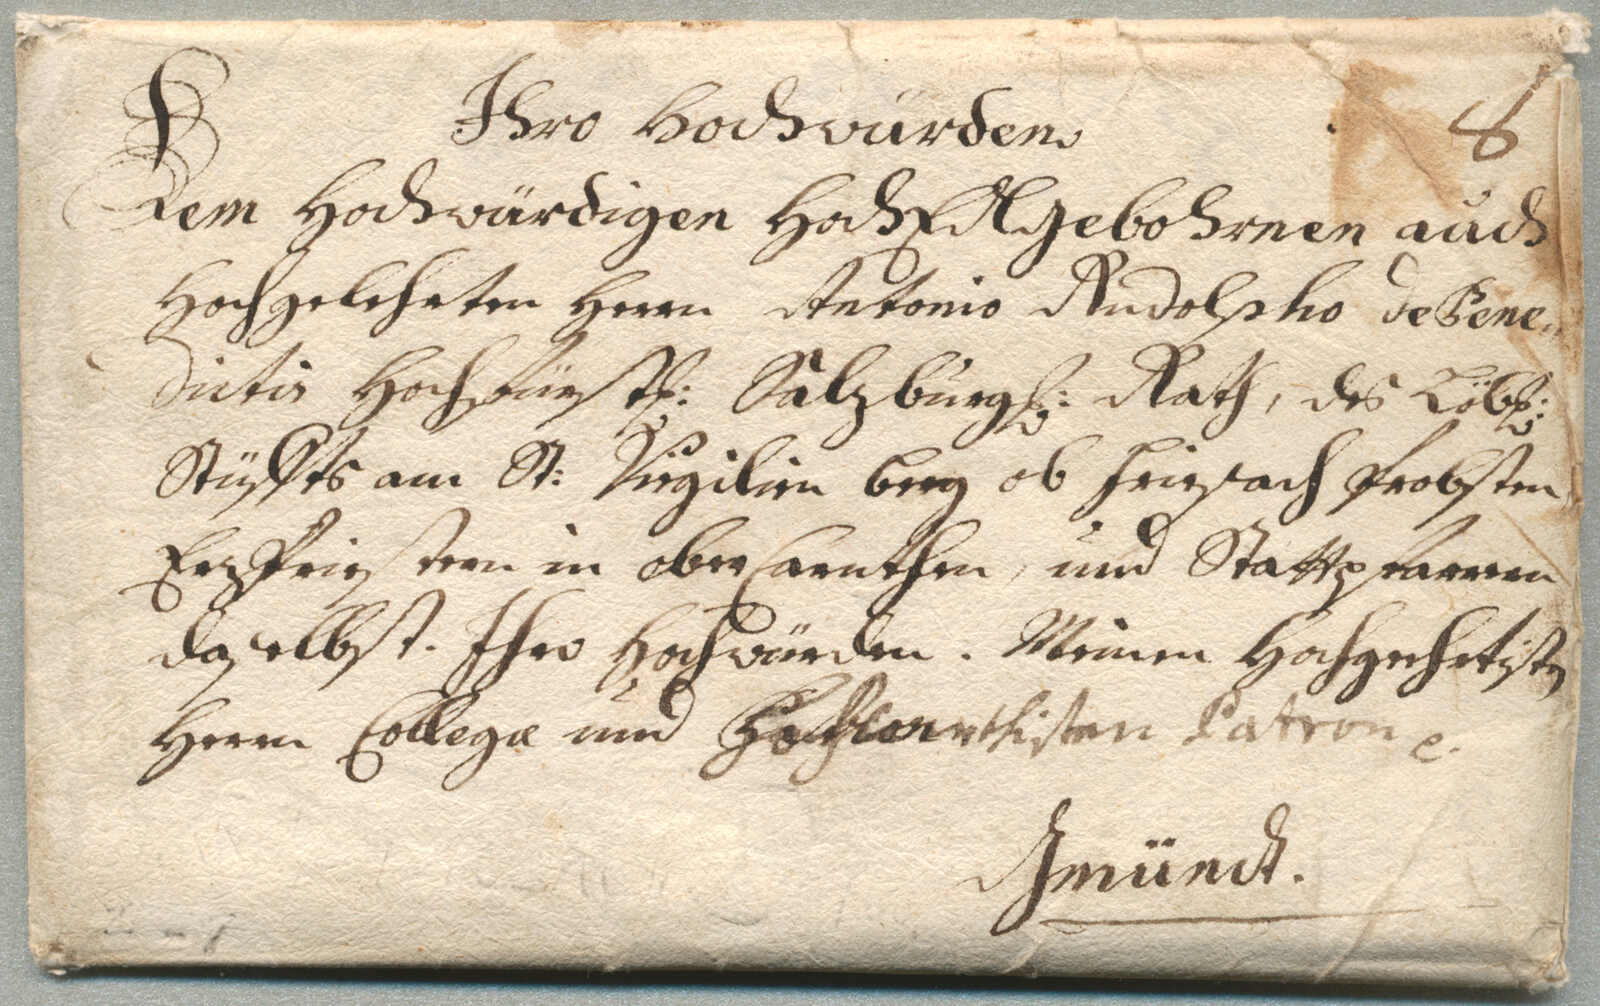 Ihro Hochwürden
8
Dem Hochwürdigen HochEdlgebohrnen auch
Hochgelehrten Herrn Antonio Rudolpho de Bene
dictis Hochfürstl: Salzburgl: Rath, des Löbl:
Stüffts am St: Virgilien berg ob Friesach Probsten
ErzPriestern in ober Carnthen, und Stattpfarrern
daselbst. Ihro Hochwürden. Meinen Hochgeehrtisten
Herrn Collegæ und Patron
Gmündt.